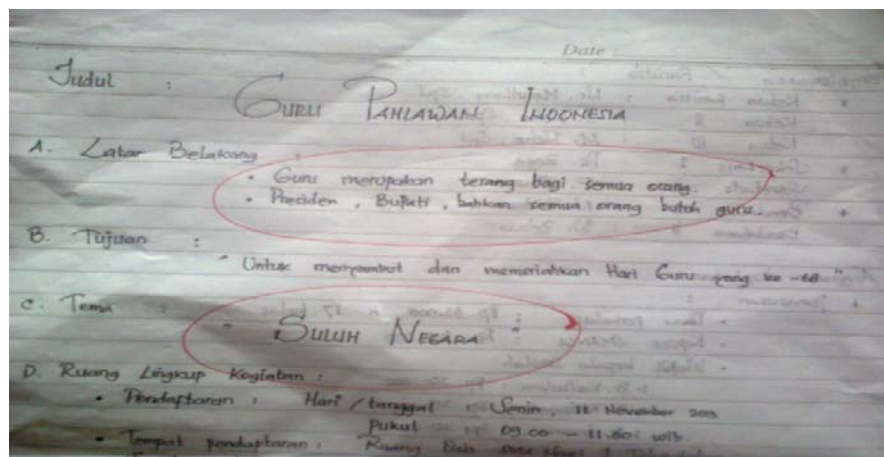 Date :
Judul :
GURU PAHLAWAN INDONESIA
A. Latar Belakang :
• Guru merupakan terang bagi semua orang.
• Presiden, Bupati, bahkan semua orang butuh guru.
B. Tujuan :
" Untuk menyambut dan memeriahkan Hari Guru yang ke-68 "
C. Tema :
" SULUH NEGARA "
D. Ruang Lingkup Kegiatan :
• Pendaftaran : Hari / tanggal : Senin, 18 November 2013
Pukul : 09.00 - 11.00 wib.
• Tempat pendaptaran : Ruang